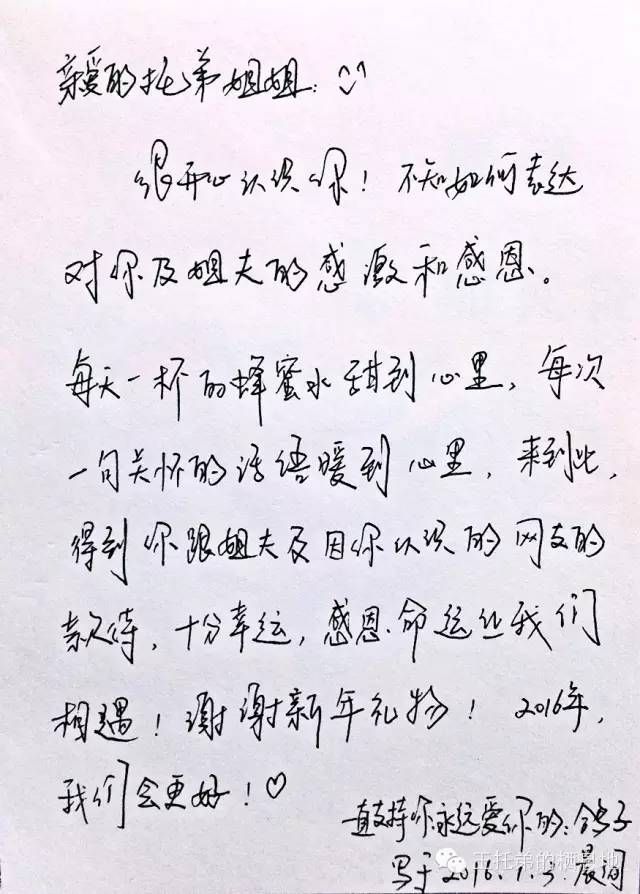 亲爱的托弟姐姐:
很开心认识你!不知如何表达
对你及姐夫的感激和感恩。
每天一杯的蜂蜜水甜到心里,每次
一句关怀的话语暖到心里,来到此,
得到你跟姐夫及因你认识的网友的
款待,十分幸运,感恩命运让我们
相遇!谢谢新年礼物!2016年,
我们会更好!♡
一直支持你永远爱你的:鸽子
写于2016.1.3.晨间